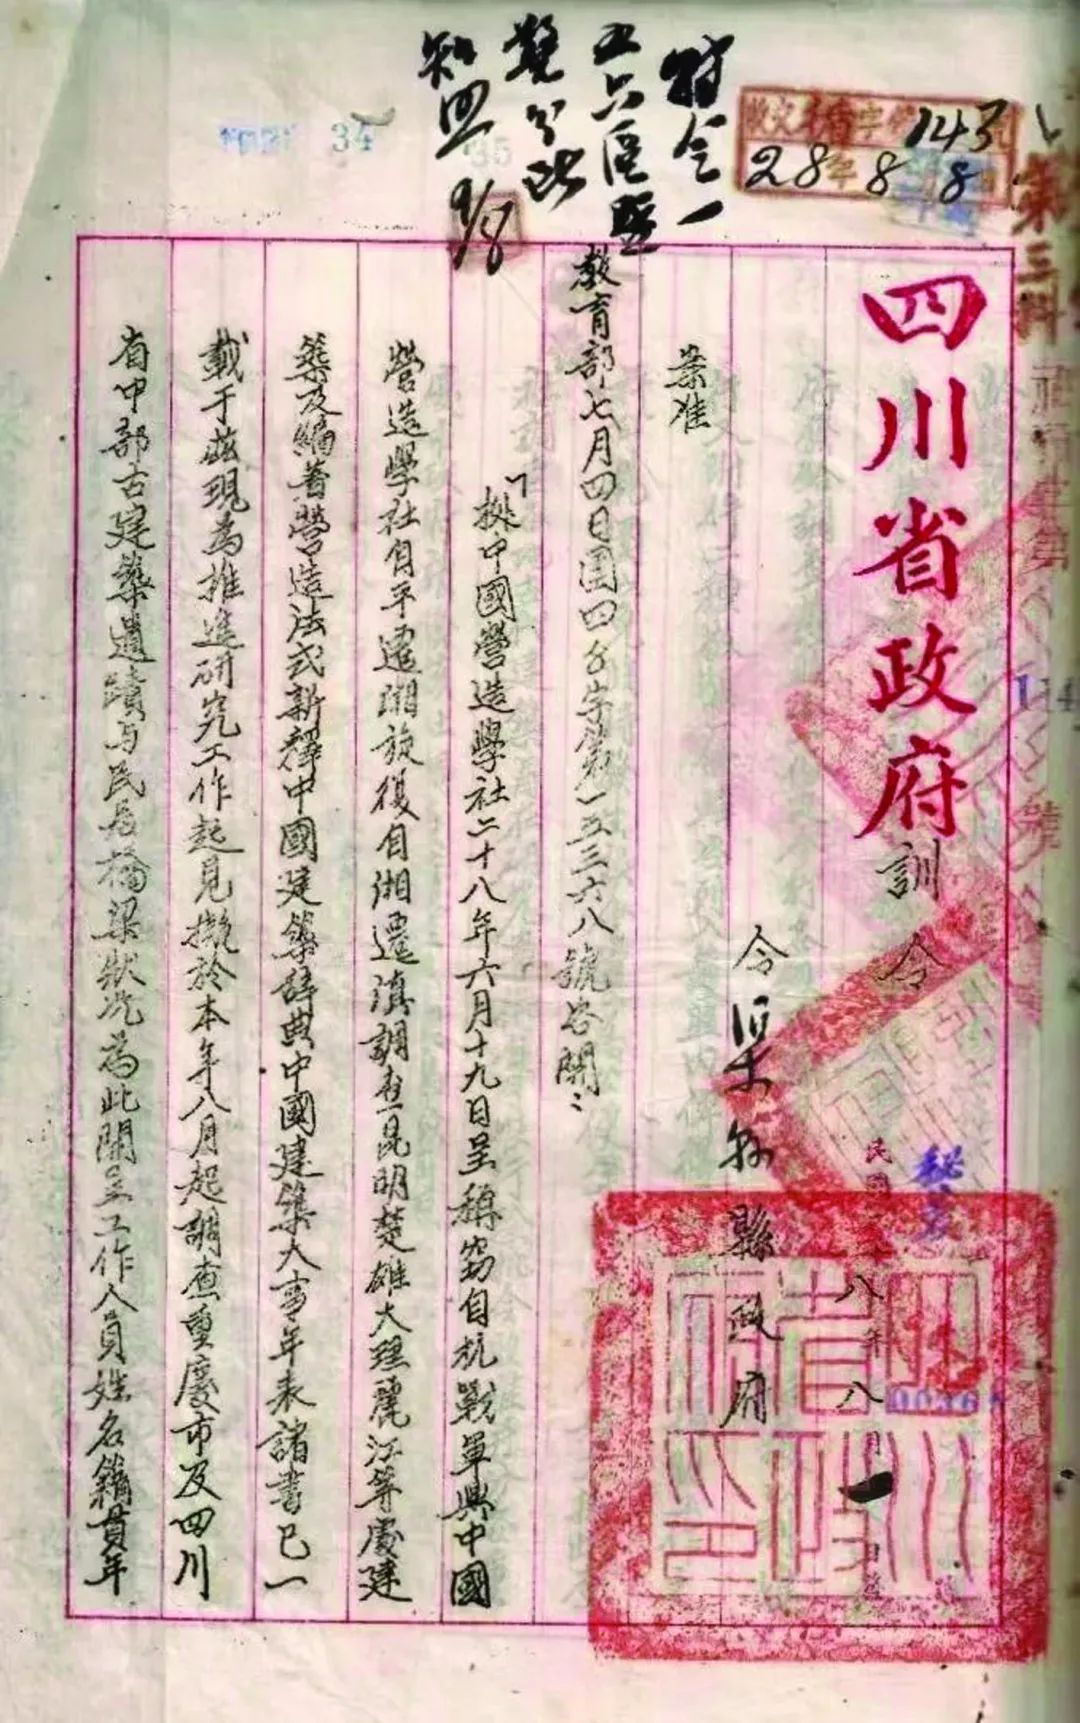 轉令一
五六區暨
警分所
知照 9/8
收文 字 143
28年8 8
34
35
第三科
四川省政府訓令
令渠縣縣政府
民國二十八年八月一日
00368
案准
教育部七月四日國四4字第一五三六八號咨開：
「據中國營造學社二十八年六月十九日呈稱窃自抗戰軍興中國
營造學社自平遷湘旋復自湘遷滇調查昆明楚雄大理麗江等處建
築及編著營造法式新釋中國建築辭典中國建築大事年表諸書已一
載于茲現為推進研究工作起見擬於本年八月起調查重慶市及四川
省中部古建築遺蹟与民居橋梁狀况為此開呈工作人員姓名籍貫年